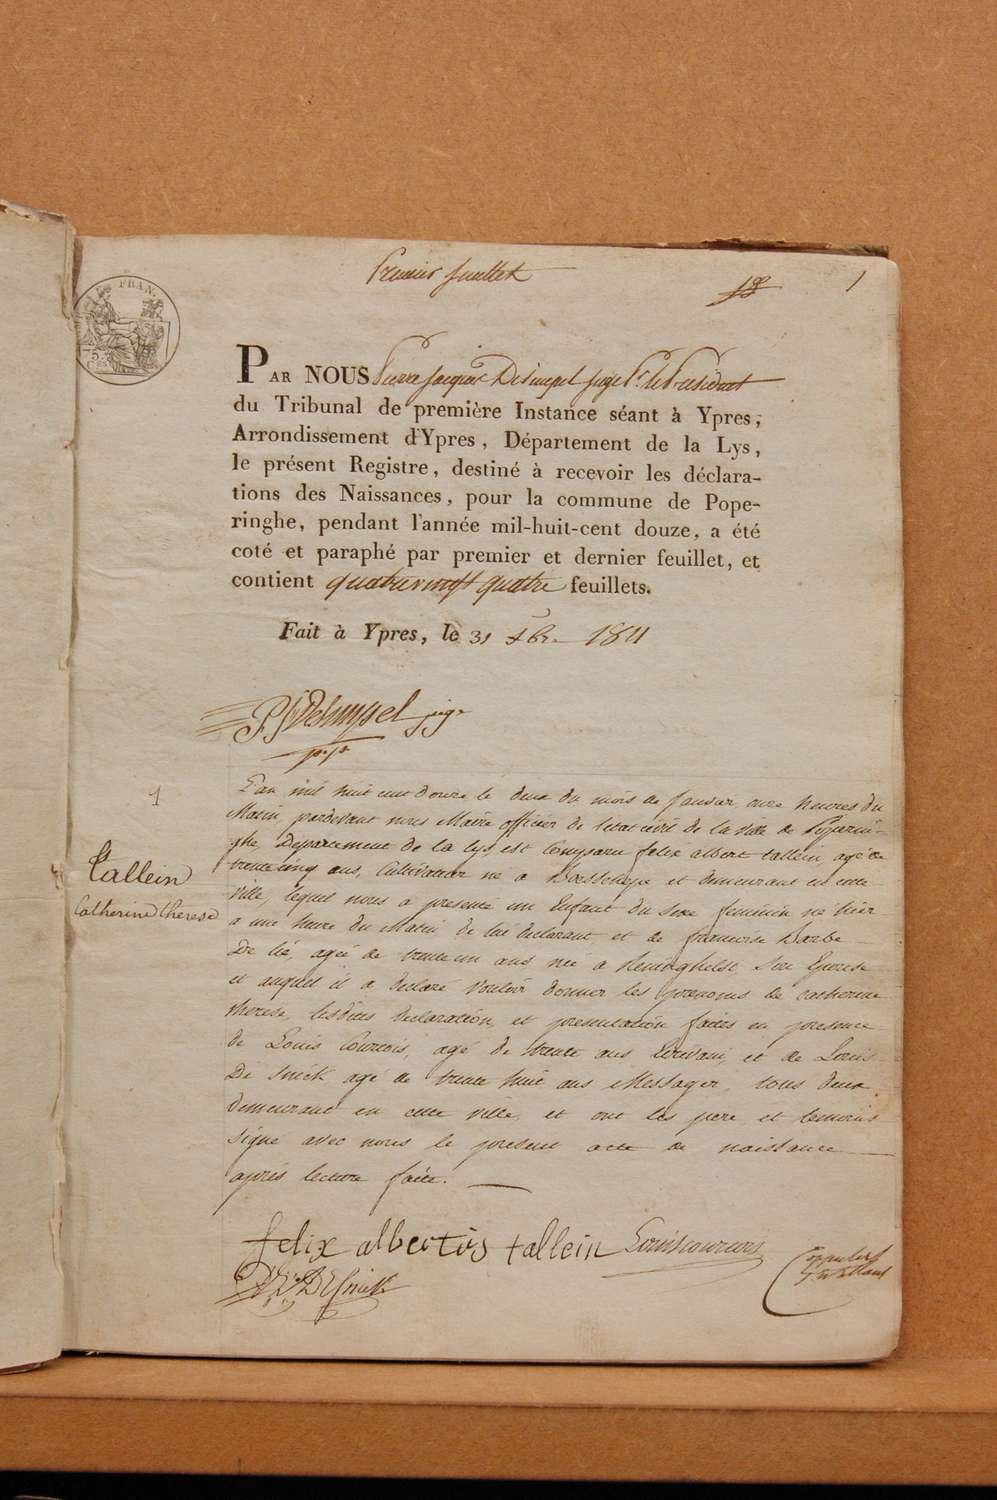 Premier feuillet
1
PAR NOUS Pierre Jacques Desmyel juge pr. le President
du Tribunal de première Instance séant à Ypres,
Arrondissement d'Ypres, Département de la Lys,
le présent Registre, destiné à recevoir les déclara-
tions des Naissances, pour la commune de Pope-
ringhe, pendant l'année mil-huit-cent douze, a été
coté et paraphé par premier et dernier feuillet, et
contient quatrevingt quatre feuillets.
Fait à Ypres, le 31 Xbre 1811
juge
1
L'an mil huit cent douze le deux du mois de Janvier onze heures du
Matin, pardevant nous Maire officier de l'etat civil de la ville de Poperin-
ghe, Departement de la Lys, est Comparu felix albert tallein, agé de
trente cinq ans, Cultivateur né a Boesschepe et demeurant en cette
ville, lequel nous a presenté un Enfant du sexe feminin né hier
a une heure du Matin de lui declarant et de francoise Barbe
De lie, agée de trente un ans née a Reninghelst, son Epouse
et auquel il a declaré vouloir donner les prenoms de catherine
therese, lesdites declaration et presentation faites en presence
de Louis Courtois, agé de trente ans Ecrivain, et de Louis
De Snick agé de trente huit ans Messager, tous deux
demeurant en cette ville, et ont les pere et temoins
signé avec nous le present acte de naissance
après lecture faite.
tallein
Catherine therese
felix albertus tallein Louis courtois